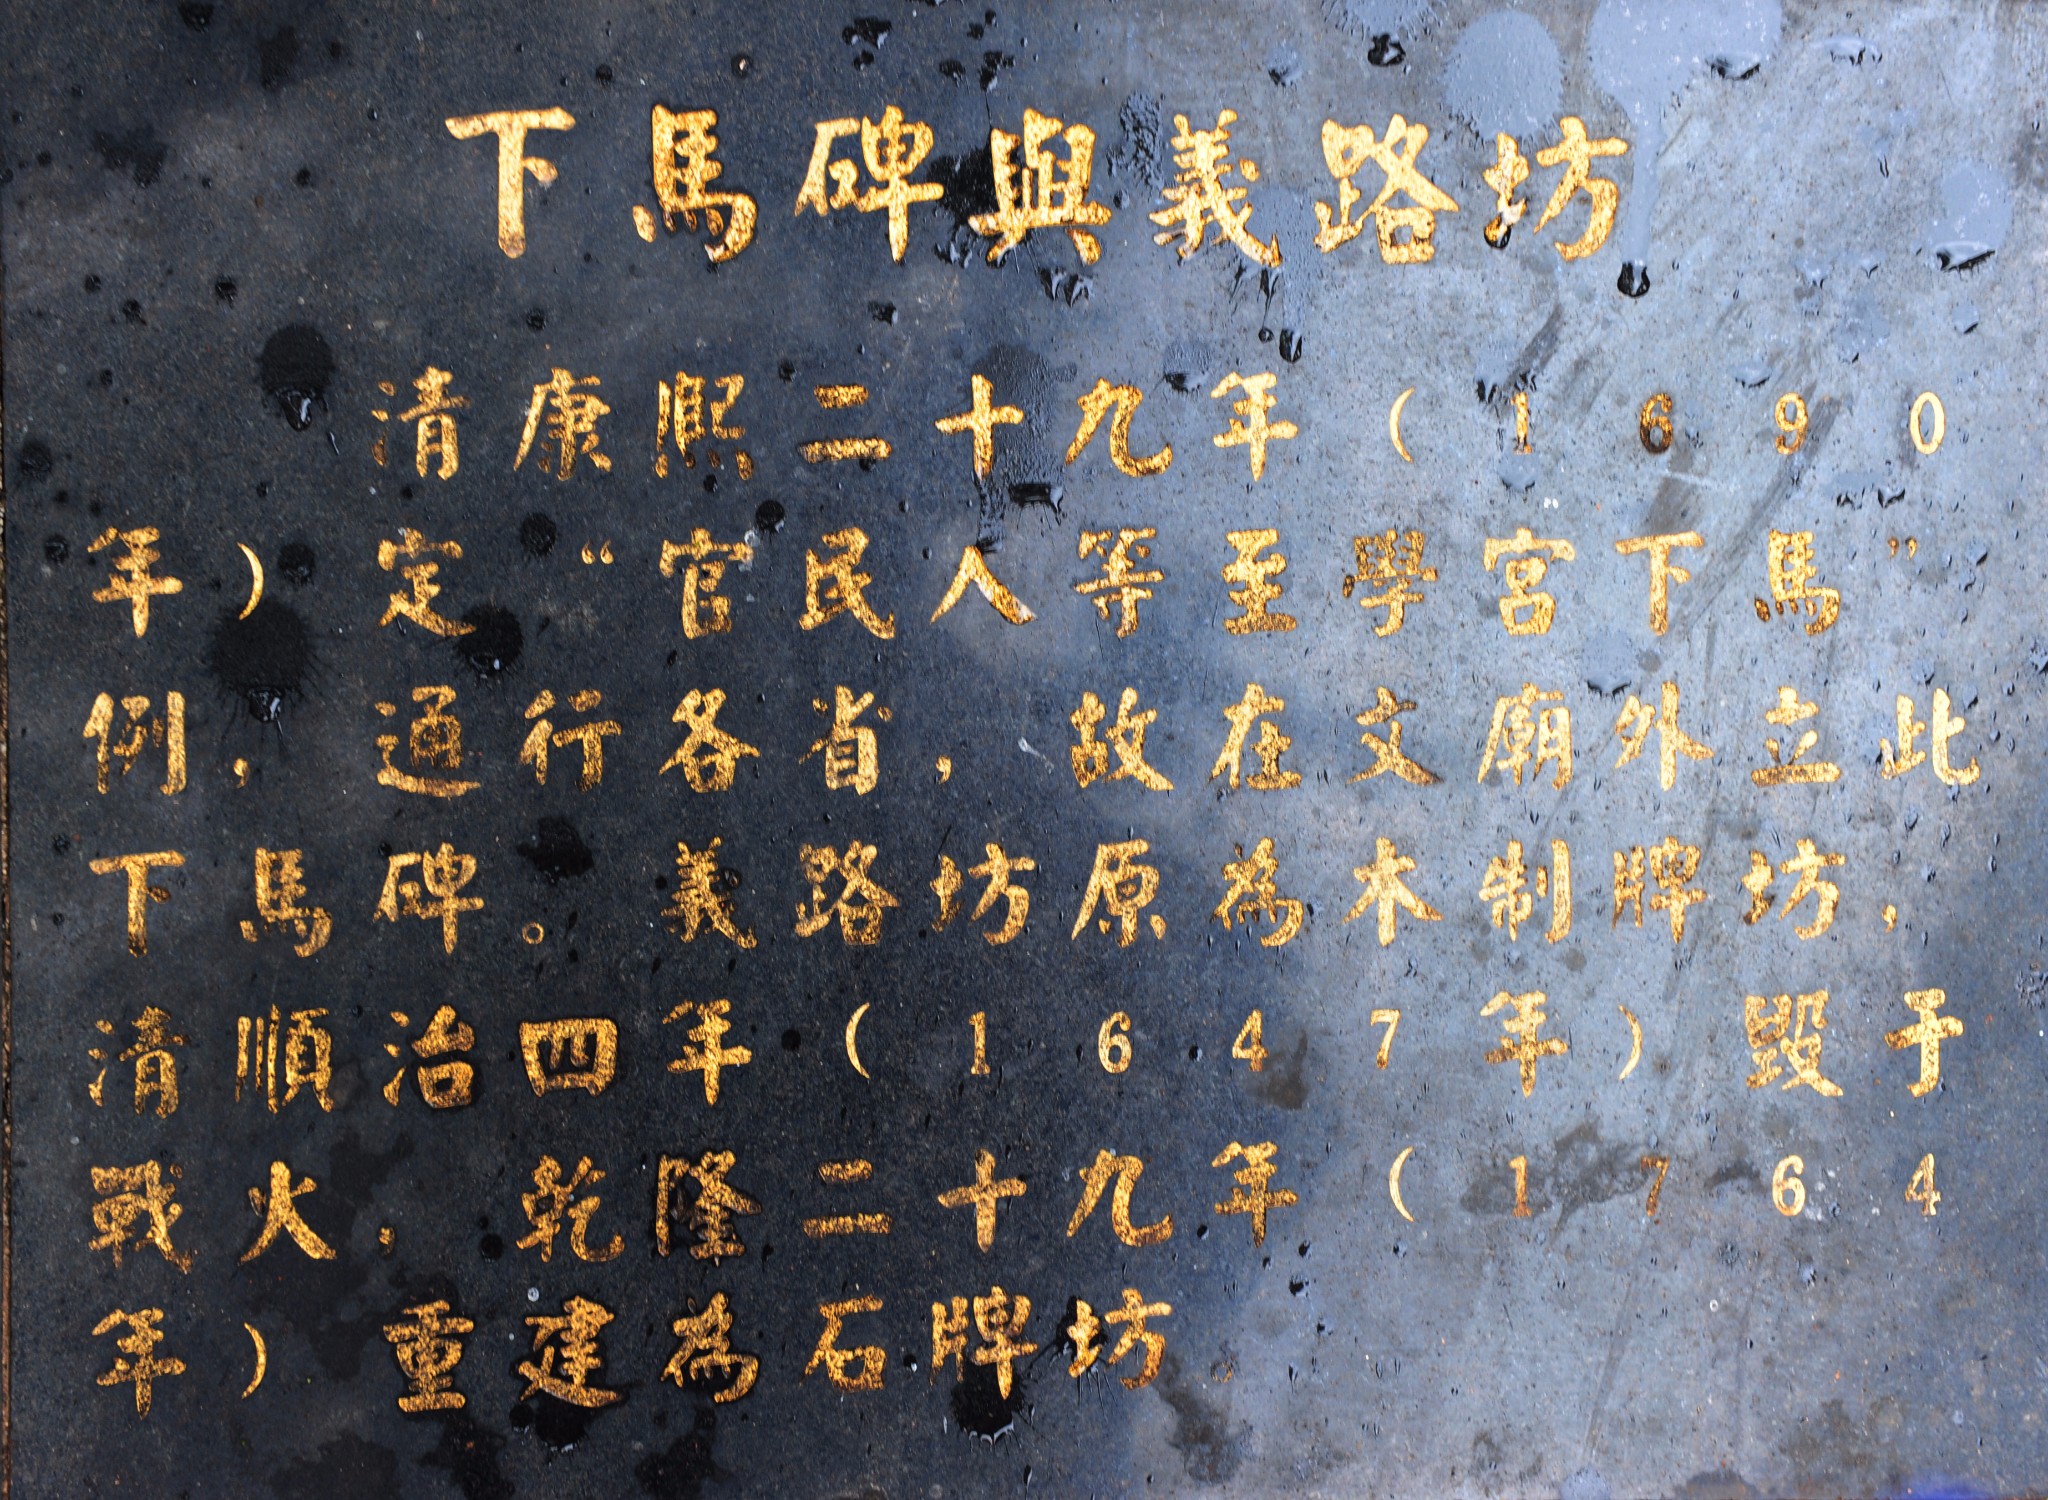 下馬碑與義路坊
清康熙二十九年(1690
年)定“官民人等至學宮下馬”
例,通行各省,故在文廟外立此
下馬碑。義路坊原為木制牌坊,
清順治四年(1647年)毀于
戰火,乾隆二十九年(1764
年)重建為石牌坊。